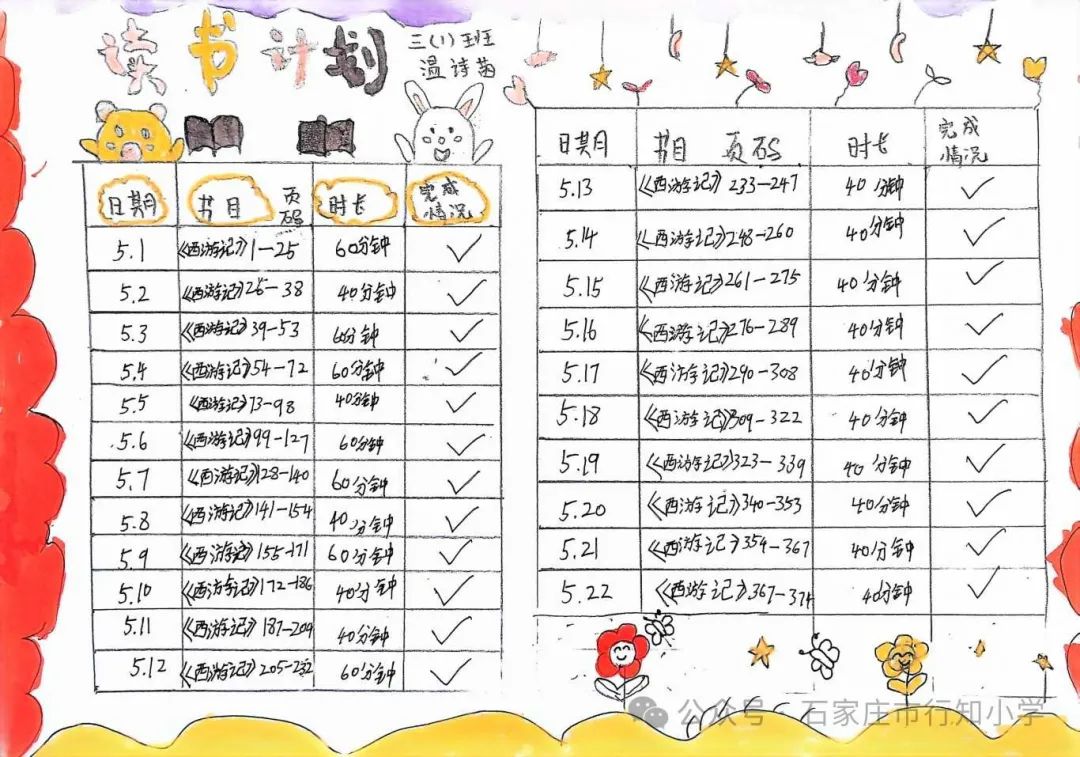 读书计划
三(1)班
温诗茵
日期 书目 页码 时长 完成情况
5.1 《西游记》1-25 60分钟 ✓
5.2 《西游记》26-38 40分钟 ✓
5.3 《西游记》39-53 60分钟 ✓
5.4 《西游记》54-72 60分钟 ✓
5.5 《西游记》73-98 40分钟 ✓
5.6 《西游记》99-127 60分钟 ✓
5.7 《西游记》128-140 60分钟 ✓
5.8 《西游记》141-154 40分钟 ✓
5.9 《西游记》155-171 60分钟 ✓
5.10 《西游记》172-186 40分钟 ✓
5.11 《西游记》187-204 40分钟 ✓
5.12 《西游记》205-232 60分钟 ✓
日期 书目 页码 时长 完成情况
5.13 《西游记》233-247 40分钟 ✓
5.14 《西游记》248-260 40分钟 ✓
5.15 《西游记》261-275 40分钟 ✓
5.16 《西游记》276-289 40分钟 ✓
5.17 《西游记》290-308 40分钟 ✓
5.18 《西游记》309-322 40分钟 ✓
5.19 《西游记》323-339 40分钟 ✓
5.20 《西游记》340-353 40分钟 ✓
5.21 《西游记》354-367 40分钟 ✓
5.22 《西游记》367-374 40分钟 ✓
公众号·石家庄市行知小学